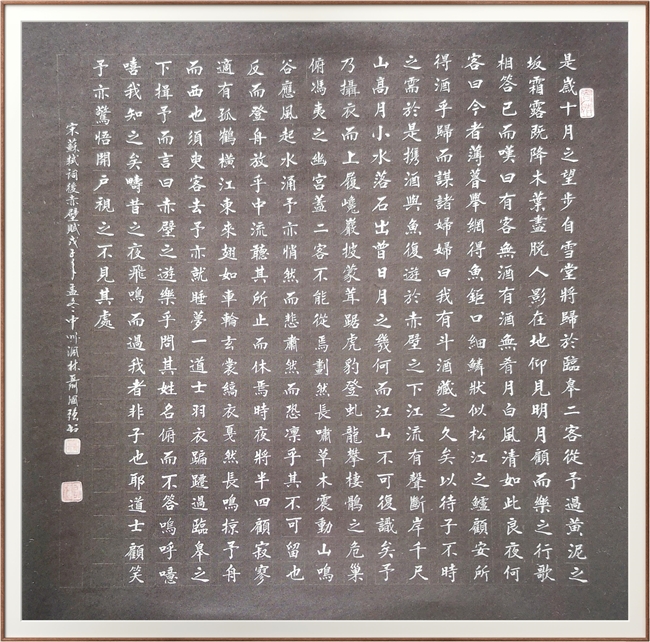 是歲十月之望步自雪堂將歸於臨皋二客從予過黃泥之
坂霜露既降木葉盡脫人影在地仰見明月顧而樂之行歌
相答已而嘆曰有客無酒有酒無肴月白風清如此良夜何
客曰今者薄暮舉網得魚鉅口細鱗狀似松江之鱸顧安所
得酒乎歸而謀諸婦婦曰我有斗酒藏之久矣以待子不時
之需於是攜酒與魚復遊於赤壁之下江流有聲斷岸千尺
山高月小水落石出曾日月之幾何而江山不可復識矣予
乃攝衣而上履巉巖披蒙茸踞虎豹登虬龍攀棲鶻之危巢
俯馮夷之幽宮蓋二客不能從焉劃然長嘯草木震動山鳴
谷應風起水涌予亦悄然而悲肅然而恐凜乎其不可留也
反而登舟放乎中流聽其所止而休焉時夜將半四顧寂寥
適有孤鶴橫江東來翅如車輪玄裳縞衣戛然長鳴掠予舟
而西也須臾客去予亦就睡夢一道士羽衣蹁躚過臨皋之
下揖予而言曰赤壁之遊樂乎問其姓名俯而不答嗚呼噫
嘻我知之矣疇昔之夜飛鳴而過我者非子也耶道士顧笑
予亦驚悟開戶視之不見其處
宋蘇軾詞後赤壁賦戊子年孟冬中州